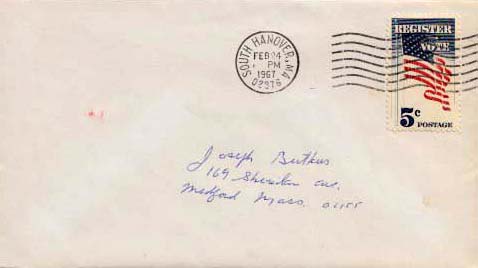 SOUTH HANOVER, MA
FEB 24
PM
1967
REGISTER
VOTE
5c
POSTAGE
Joseph
169 Sheridan Ave.
Medford Mass. 02155